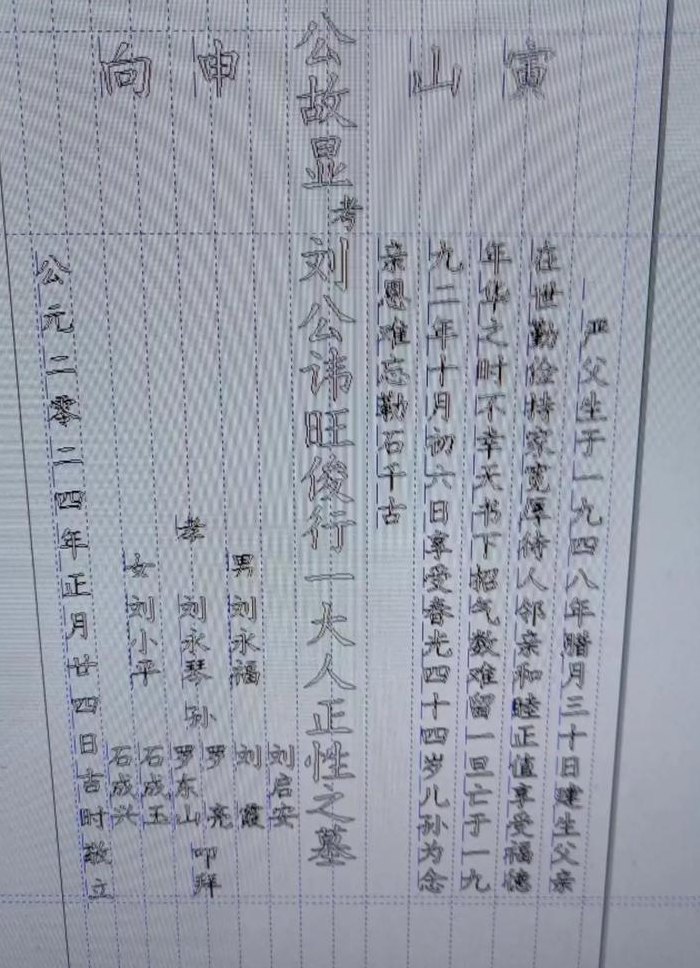 寅山申向
严父生于一九四八年腊月三十日建生父亲
在世勤俭持家宽厚待人邻亲和睦正值享受福德
年华之时不幸天书下招气数难留一旦亡于一九
九二年十月初六日享受春光四十四岁儿孙为念
亲恩难忘勒石千古
公故显考刘公讳旺俊行一大人正性之墓
孝
男刘永福
刘永琴
女刘小平
孙
刘启安
刘霞
罗亮
罗东山
石成玉
石成兴
叩拜
公元二零二四年正月廿四日吉时敬立